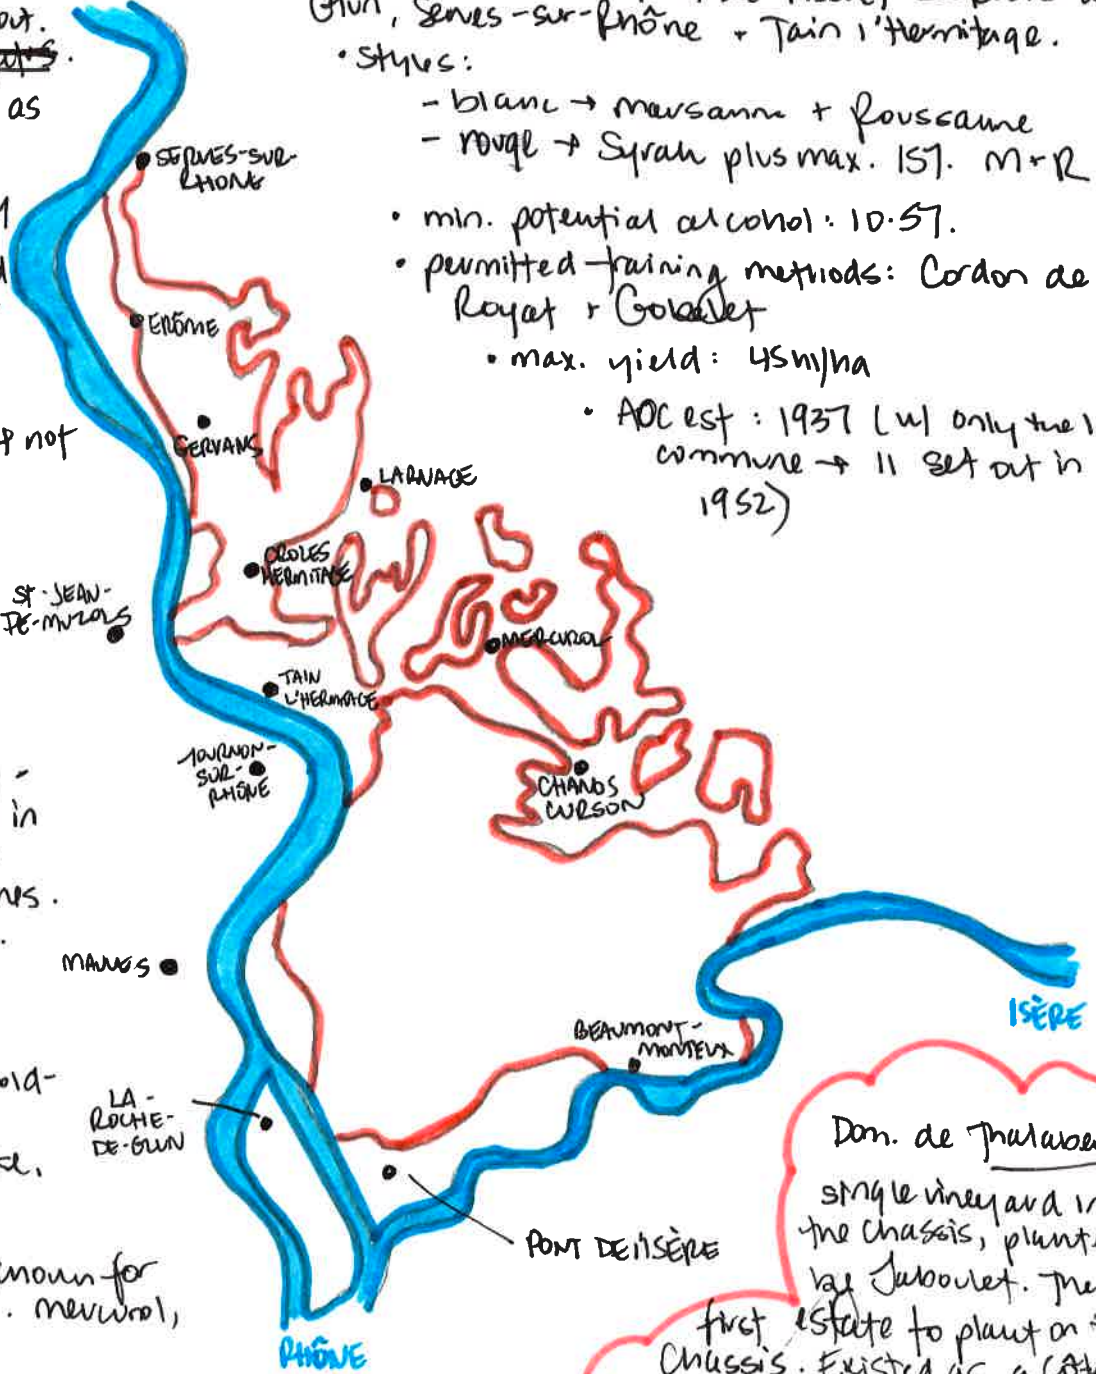 out.
as
Glun, Serves-sur-Rhône + Tain l'Hermitage.
• Styles:
- blanc → marsanne + Roussanne
- rouge → Syrah plus max. 15%. M+R
• min. potential alcohol: 10.5%.
• permitted training methods: Cordon de
Royat + Gobelet
• max. yield: 45hl/ha
• AOC est: 1937 (w/ only the 1
commune → 11 set out in
1952)
not
in
known for
. mercurol,
SERVES-SUR-
RHONE
ERÔME
GERVANS
LARNAGE
CROZES
HERMITAGE
ST-JEAN-
DE-MUZOLS
MERCUROL
TAIN
L'HERMITAGE
TOURNON-
SUR-
RHÔNE
CHANOS
CURSON
MAUVES
BEAUMONT-
MONTEUX
ISÈRE
LA-
ROCHE-
DE-GLUN
PONT DE L'ISÈRE
RHÔNE
Dom. de
single vineyard in
the Chassis,
by Jaboulet. The
first estate to plant on
Chassis. Existed as a